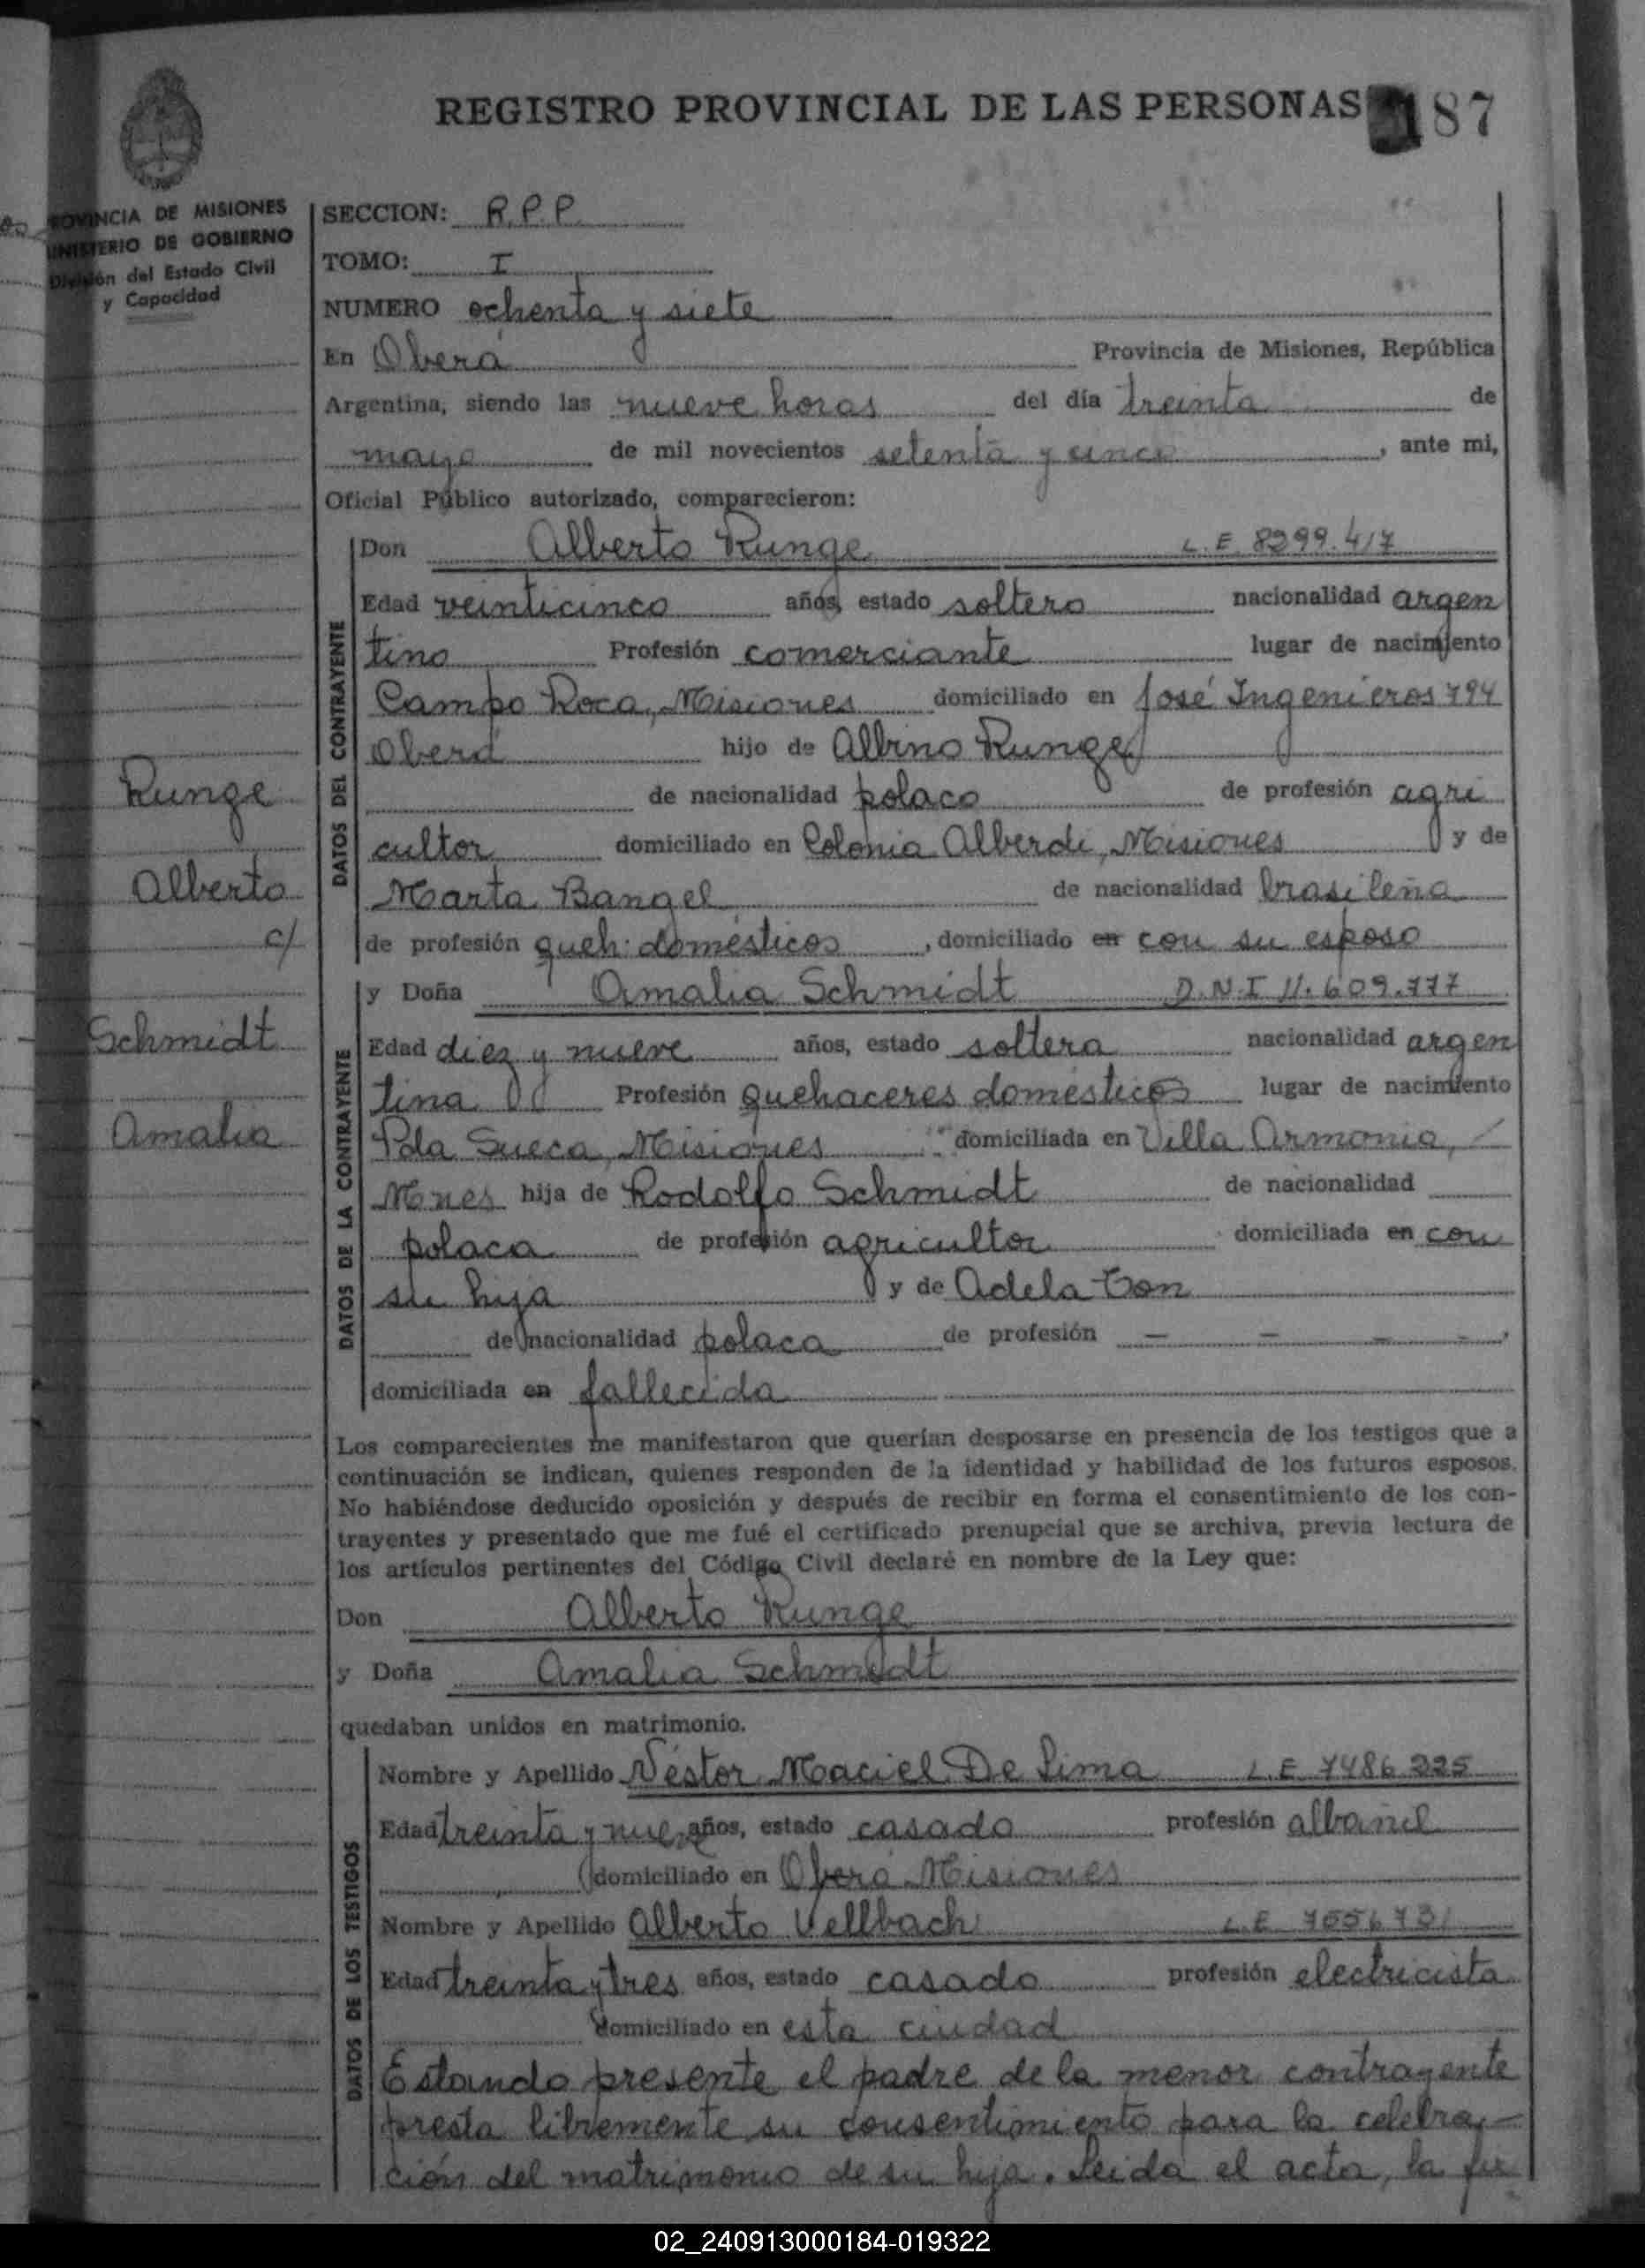 REGISTRO PROVINCIAL DE LAS PERSONAS 187
PROVINCIA DE MISIONES
MINISTERIO DE GOBIERNO
División del Estado Civil
y Capacidad
SECCION: R.P.P.
TOMO: I
NUMERO ochenta y siete
En Oberá Provincia de Misiones, República
Argentina, siendo las nueve horas del día treinta de
mayo de mil novecientos setenta y cinco, ante mi,
Oficial Público autorizado, comparecieron:
DATOS DEL CONTRAYENTE
Don Alberto Runge L.E. 8299.417
Edad veinticinco años, estado soltero nacionalidad argen
tino Profesión comerciante lugar de nacimiento
Campo Roca, Misiones domiciliado en José Ingenieros 794
Oberá hijo de Albino Runge
de nacionalidad polaco de profesión agri
cultor domiciliado en Colonia Alberdi, Misiones y de
Marta Bangel de nacionalidad brasileña
de profesión queh. domésticos, domiciliado en con su esposo
Runge
Alberto
c/
Schmidt
Amalia
DATOS DE LA CONTRAYENTE
y Doña Amalia Schmidt D.N.I 11.609.777
Edad diez y nueve años, estado soltera nacionalidad argen
tina Profesión quehaceres domésticos lugar de nacimiento
Pda Sueca, Misiones domiciliada en Villa Armonia,
Mnes hija de Rodolfo Schmidt de nacionalidad
polaca de profesión agricultor domiciliada en con
su hija y de Adela Ton
de nacionalidad polaca de profesión — — — —,
domiciliada en fallecida
Los comparecientes me manifestaron que querían desposarse en presencia de los testigos que a
continuación se indican, quienes responden de la identidad y habilidad de los futuros esposos.
No habiéndose deducido oposición y después de recibir en forma el consentimiento de los con-
trayentes y presentado que me fué el certificado prenupcial que se archiva, previa lectura de
los artículos pertinentes del Código Civil declaré en nombre de la Ley que:
Don Alberto Runge
y Doña Amalia Schmidt
quedaban unidos en matrimonio.
DATOS DE LOS TESTIGOS
Nombre y Apellido Néstor Maciel De Lima L.E. 7486.225
Edad treinta y nueve años, estado casado profesión albañil
domiciliado en Oberá Misiones
Nombre y Apellido Alberto Vellbach L.E 755673
Edad treinta y tres años, estado casado profesión electricista
domiciliado en esta ciudad
Estando presente el padre de la menor contrayente
presta libremente su consentimiento para la celebra-
ción del matrimonio de su hija. Leida el acta, la fir
02_240913000184-019322